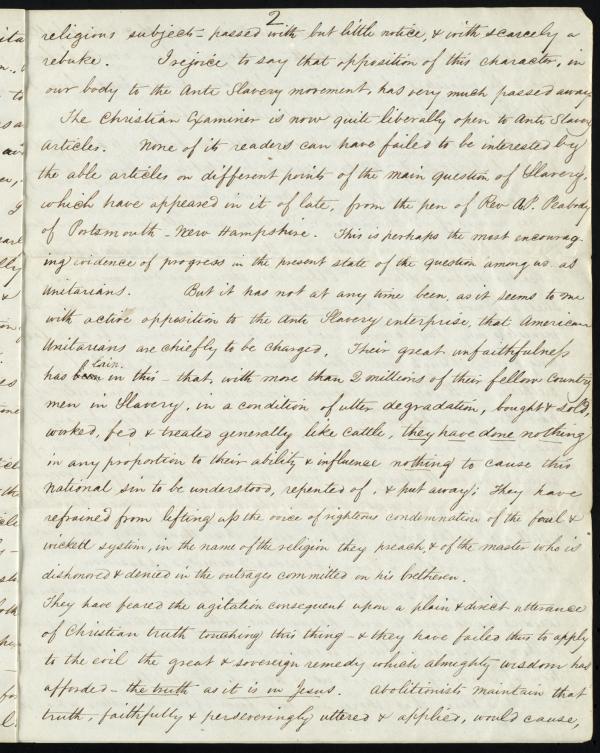 2
religious subjects - passed with but little notice, & with scarcely a
rebuke. I rejoice to say that opposition of this character, in
our body to the Anti Slavery movement, has very much passed away
The Christian Examiner is now quite liberally open to Anti Slavery
Articles. None of its readers can have failed to be interested by
the able articles on different points of the main question of Slavery,
which have appeared in it of late, from the pen of Rev A.P. Peabody
of Portsmouth - New Hampshire. This is perhaps the most encourag-
ing evidence of progress in the present state of the question among us as
Unitarians. But it has not at any time been, as it seems to me
with active opposition to the Anti Slavery enterprise, that American
Unitarians are chiefly to be charged. Their great unfaithfulness
has been lain in this - that, with more than 2 millions of their fellow Country
men in Slavery, in a condition of utter degradation, bought & sold,
worked, fed & treated generally like cattle, they have done nothing
in any proportion to their ability & influence nothing to cause this
National sin to be understood, repented of, & put away; They have
refrained from lifting up the voice of righteous condemnation of the foul &
wicked system, in the name of the religion they preach & of the master who is
dishonored & denied in the outrages committed on his bretheren.
They have feared the agitation consequent upon a plain & direct utterance
of Christian truth touching this thing - & they have failed thus to apply
to the evil the great & sovereign remedy which almighty wisdom has
afforded - the truth as it is in Jesus. Abolitionists maintain that
truth, faithfully & perseveringly uttered & applied, would cause,